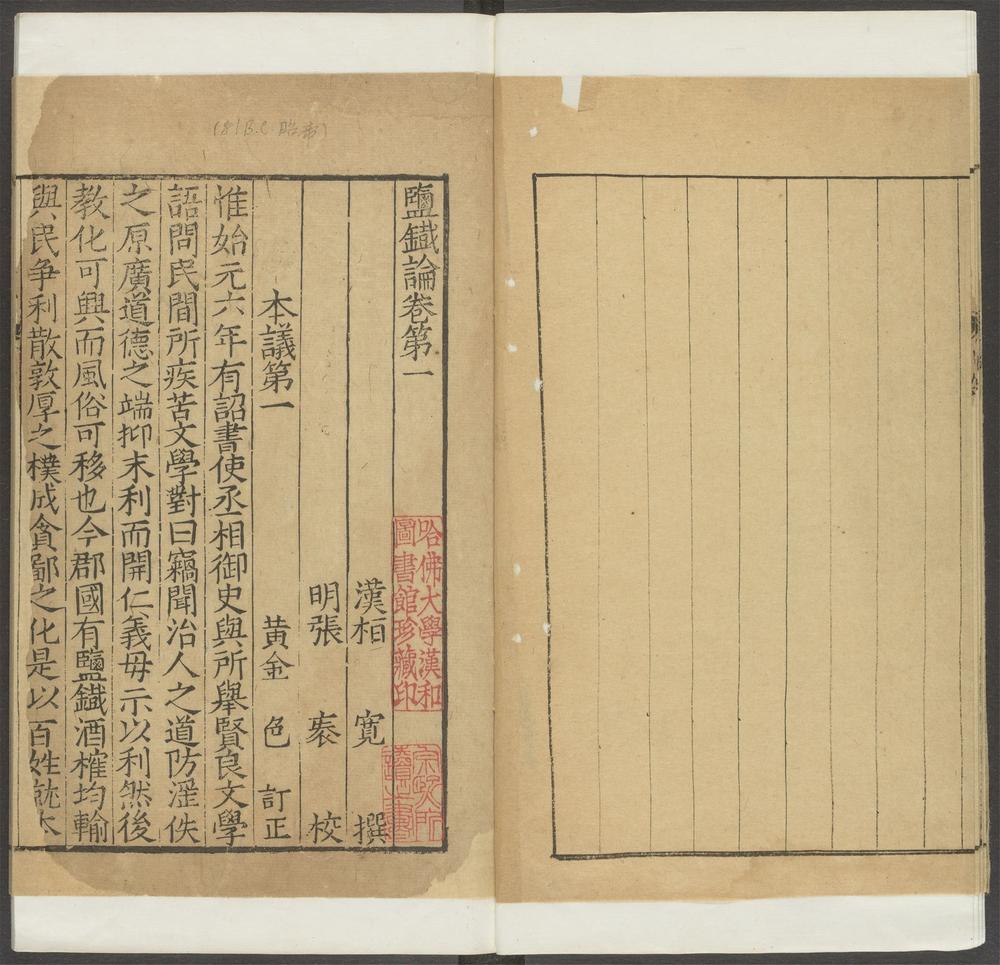 (81 B.C. 昭帝)
鹽鐵論卷第一
漢桓寬撰
明張袠校
黃金色訂正
本議第一
惟始元六年有詔書使丞相御史與所舉賢良文學
語問民間所疾苦文學對曰竊聞治人之道防淫佚
之原廣道德之端抑末利而開仁義毋示以利然後
教化可興而風俗可移也今郡國有鹽鐵酒榷均輸
與民爭利散敦厚之樸成貪鄙之化是以百姓就本
哈佛大學漢和
圖書館珍藏印